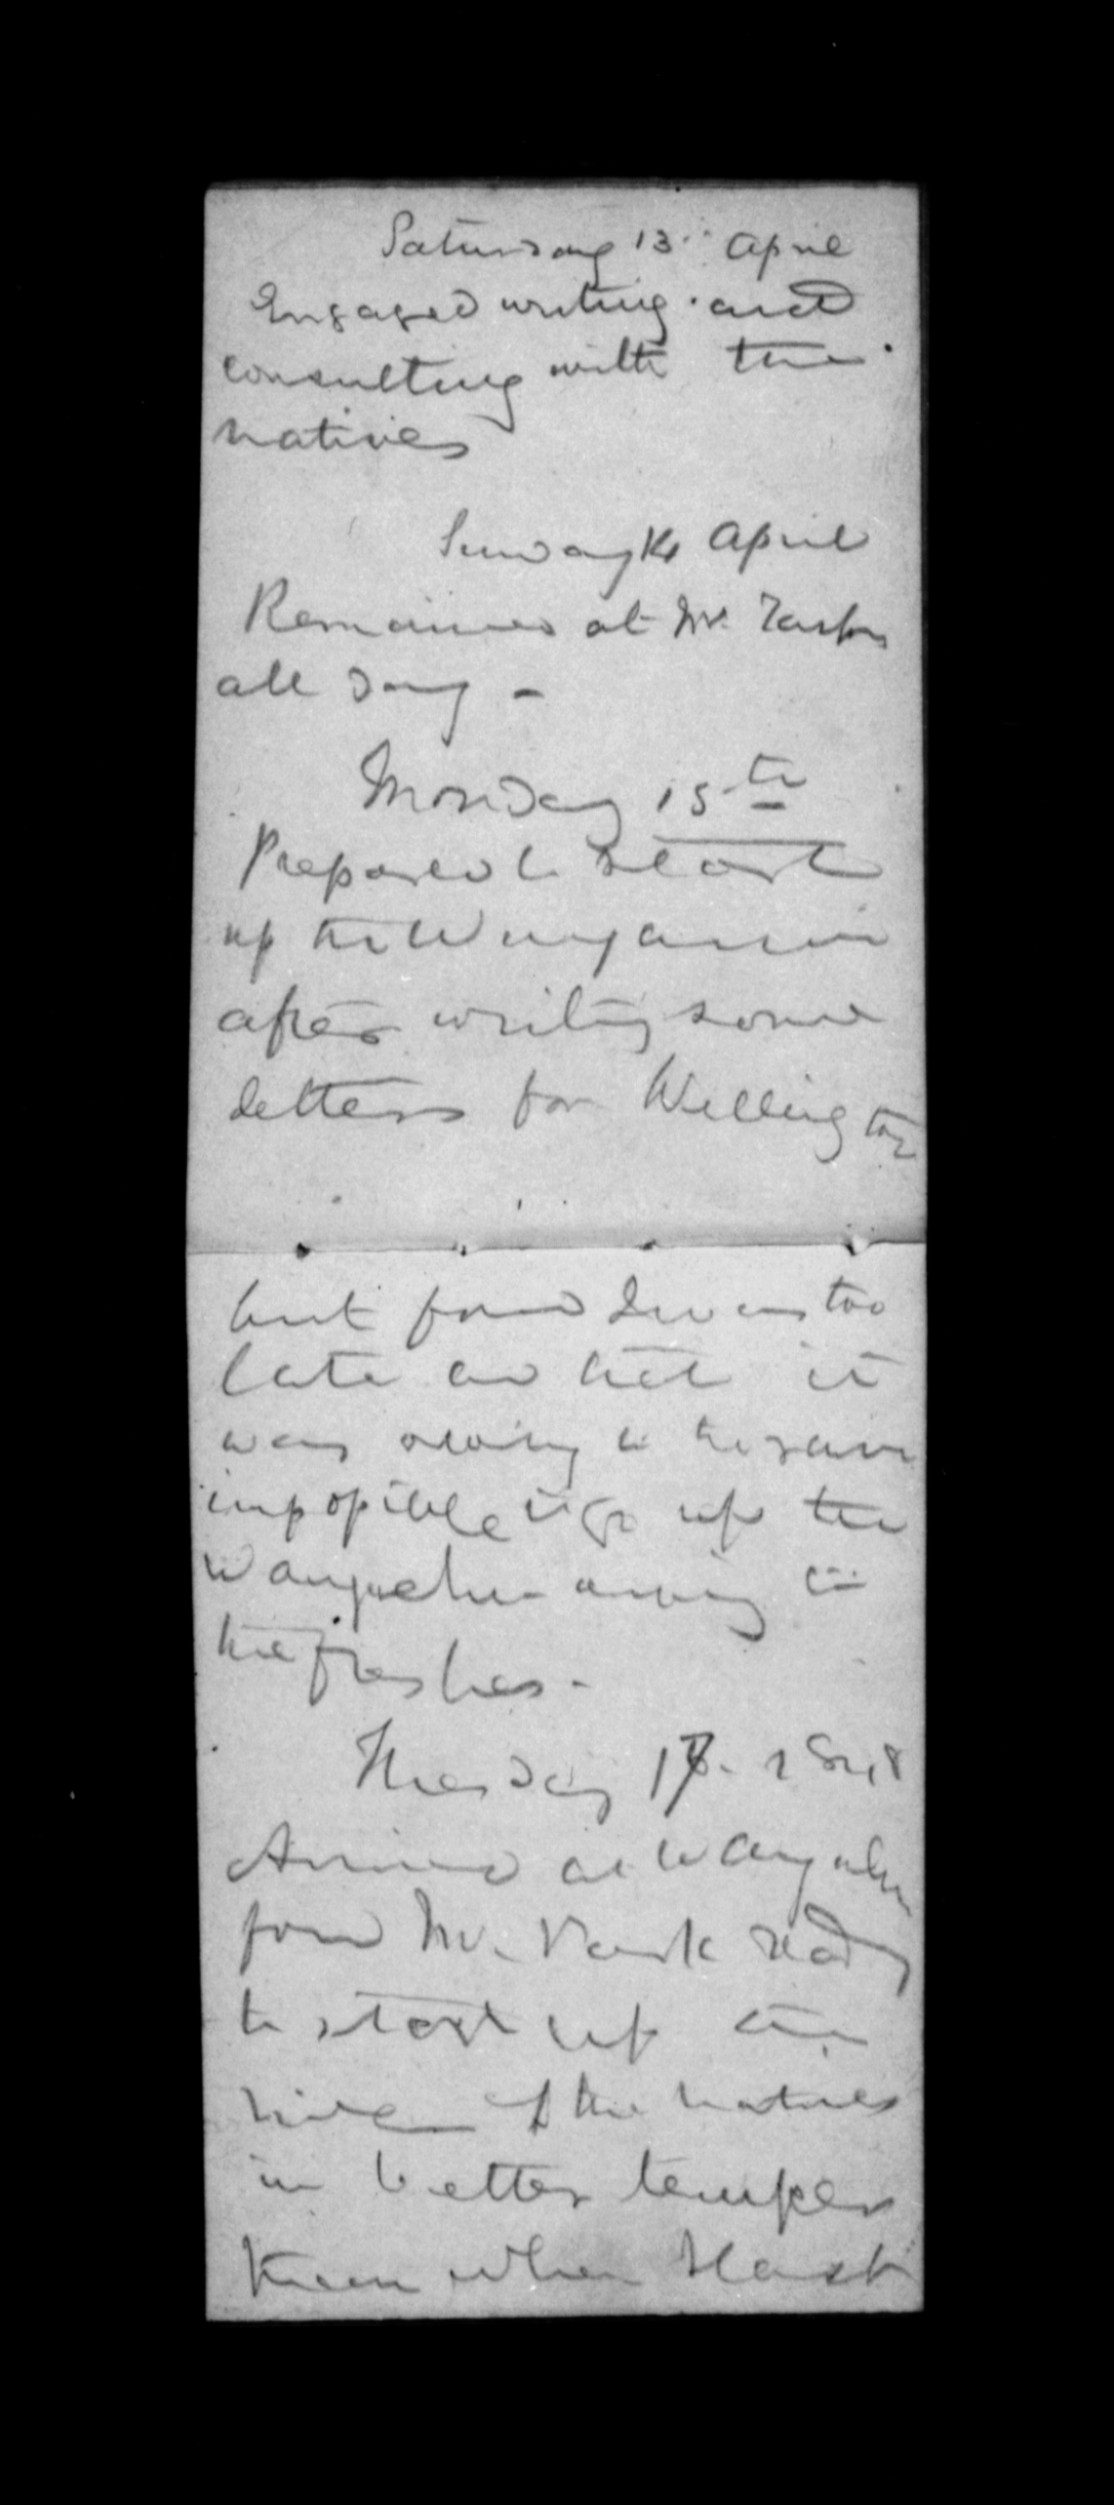 Saturday 13th April
Engaged writing and
consulting with the
natives
Sunday 14 April
Remained at Mr.
all day -
Monday 15th
Prepared to start
up the
after writing some
letters for Wellington
but found I was too
late and that it
was owing to the rain
impossible to go up the
Wangaehu owing to
the freshes -
Thursday
Arrived at Wangaehu
found Mr. Park ready
to start up the
river & the natives
in better temper
than when I last